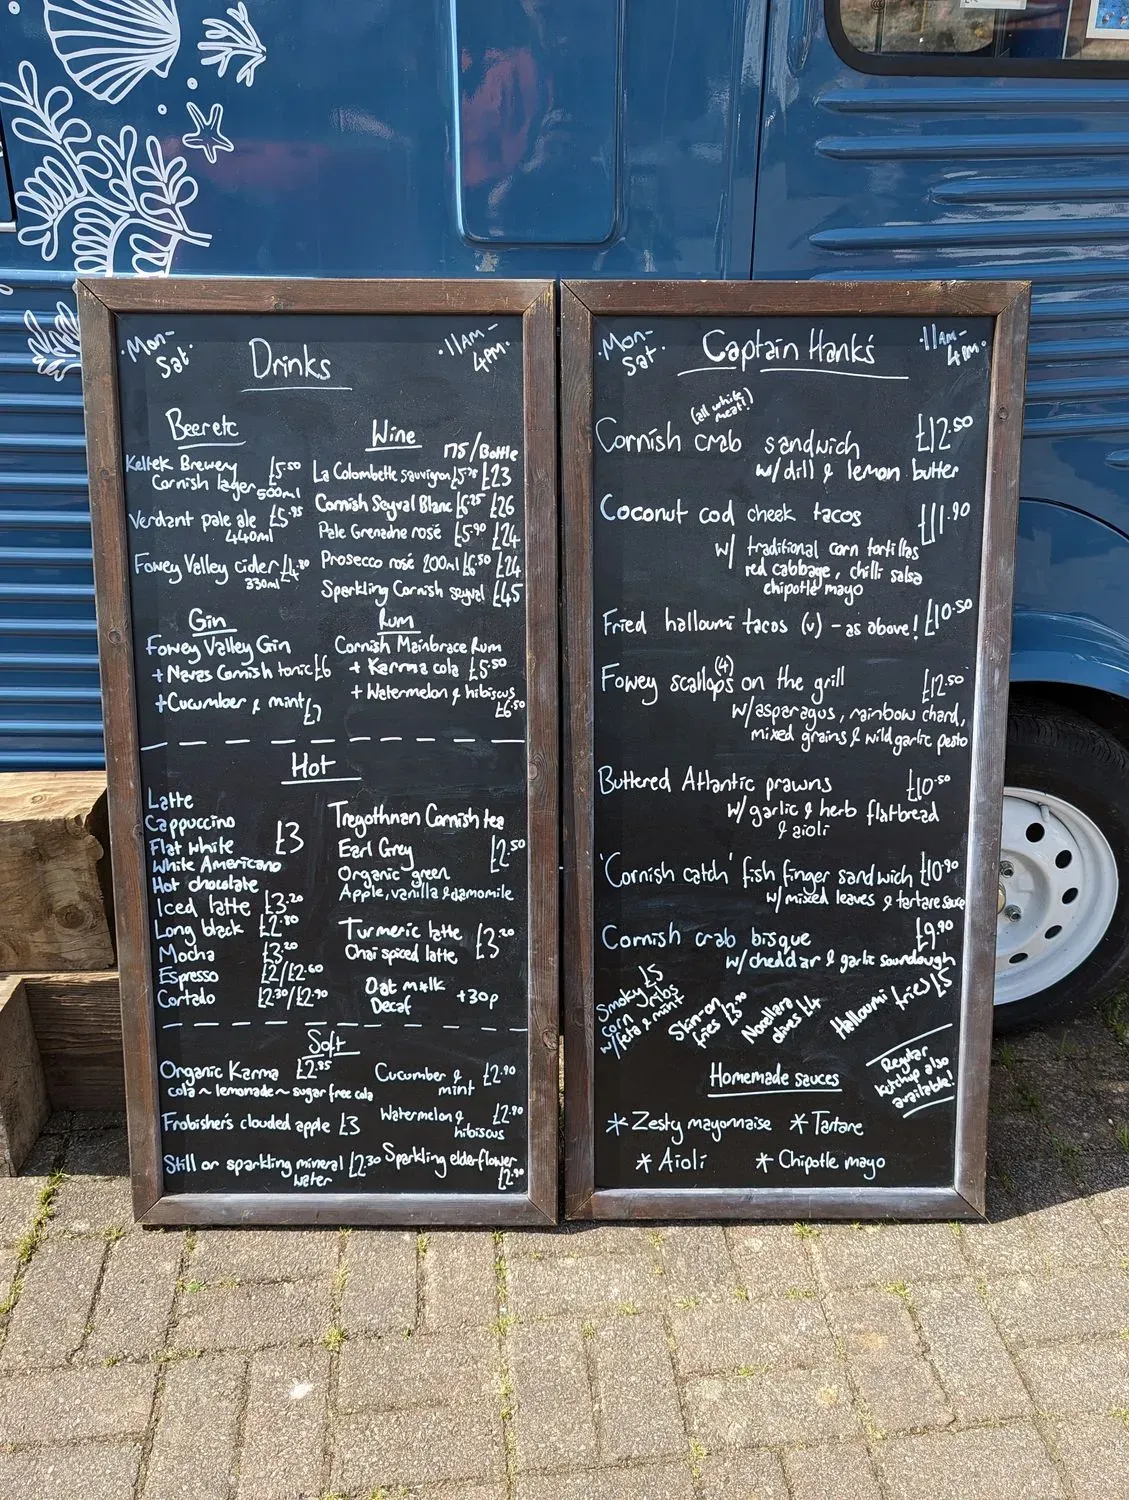 Mon-
Sat.
Drinks
11AM-
4PM.
Beer etc
Keltek Brewery £5.50
Cornish lager 500ml
Verdant pale ale £5.95
440ml
Fowey Valley cider £4.80
330ml
Wine
175/Bottle
La Colombette sauvignon £5.75 £23
Cornish Seyval Blanc £6.25 £26
Pale Grenache rosé £5.90 £24
Prosecco rosé 200ml £6.50 £24
Sparkling Cornish seyval £45
Gin
Fowey Valley Gin
+ Navas Cornish tonic £6
+ Cucumber & mint £7
Rum
Cornish Mainbrace Rum
+ Karma cola £5.50
+ Watermelon & hibiscus
£6.50
Hot
Latte
Cappuccino
Flat white £3
White Americano
Hot chocolate
Iced latte £3.20
Long black £2.80
Mocha £3.20
Espresso £2/£2.60
Cortado £2.30/£2.90
Tregothnan Cornish tea
Earl Grey £2.50
Organic green
Apple, vanilla & camomile
Turmeric latte £3.20
Chai spiced latte
Oat milk
Decaf +30p
Soft
Organic Karma £2.85
cola ~ lemonade ~ sugar free cola
Frobishers clouded apple £3
Still or sparkling mineral £2.30
water
Cucumber & £2.90
mint
Watermelon & £2.90
hibiscus
Sparkling elderflower
£2.90
Mon-
Sat.
Captain Hank's
11AM-
4PM.
(all white
meat!)
Cornish crab sandwich £12.50
w/ dill & lemon butter
Coconut cod cheek tacos £11.90
w/ traditional corn tortillas
red cabbage, chilli salsa
chipotle mayo
Fried halloumi tacos (v) - as above! £10.50
Fowey scallops (4) on the grill £12.50
w/ asparagus, rainbow chard,
mixed grains & wild garlic pesto
Buttered Atlantic prawns £10.50
w/ garlic & herb flatbread
& aioli
'Cornish catch' fish finger sandwich £10.90
w/ mixed leaves & tartare sauce
Cornish crab bisque £9.90
w/ cheddar & garlic sourdough
Smoky £5
corn ribs
w/ feta & mint
Skin-on
fries £3.90
Nocellara
olives £4
Halloumi fries £5
Homemade sauces
Regular
ketchup also
available!
* Zesty mayonnaise * Tartare
* Aioli * Chipotle mayo